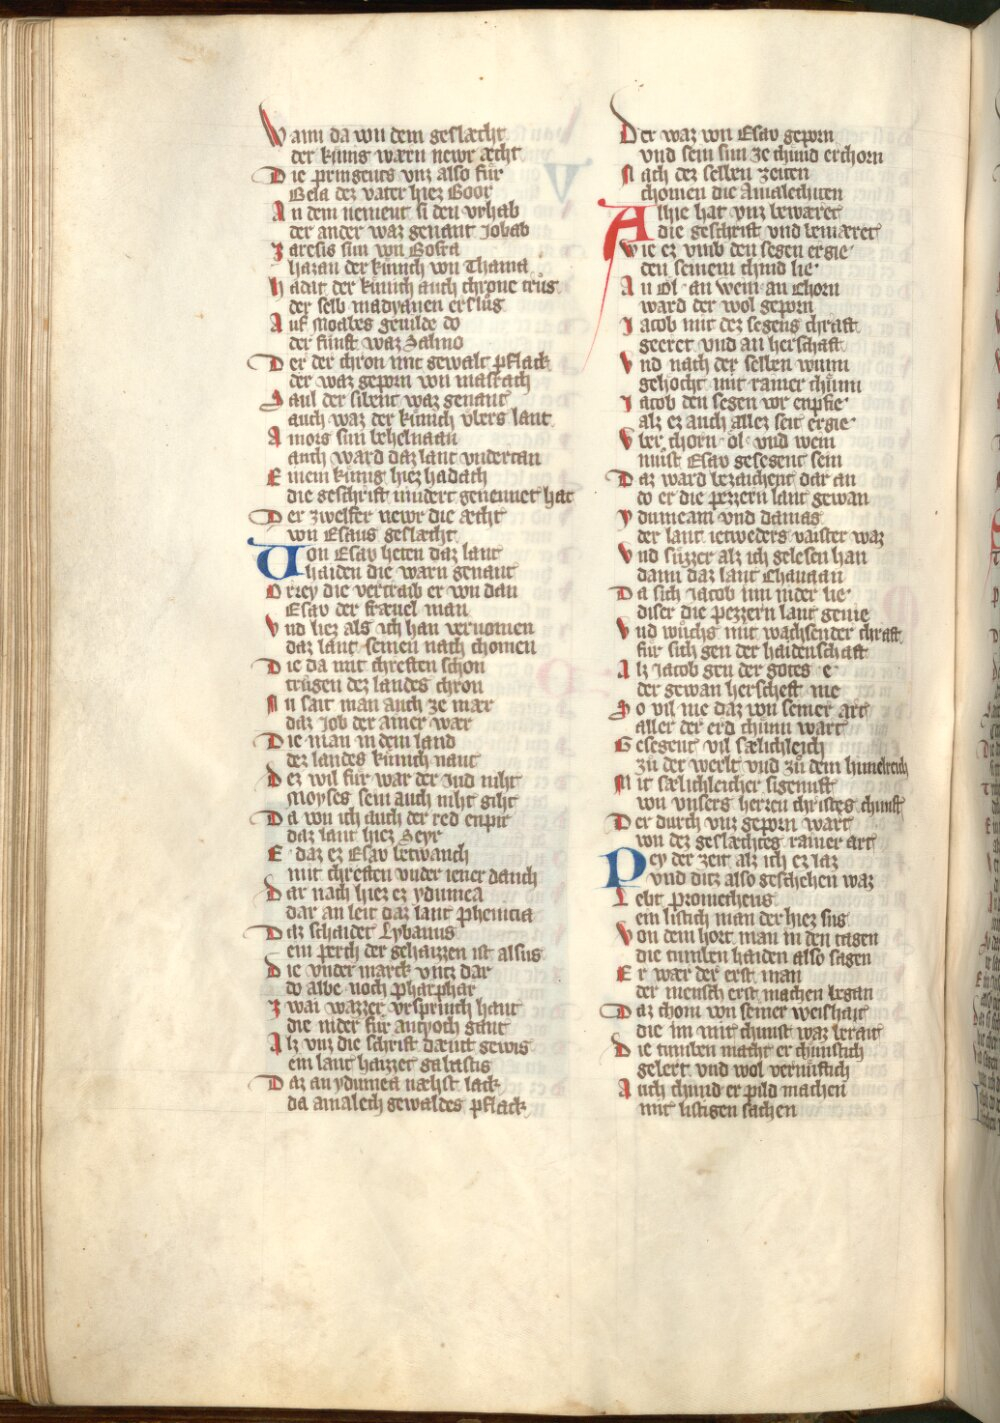 Wann da von dem geslæcht
der kůnig wærn newr æcht
Die pringents vnz also fůr
Bela dez vater hiez Boor
An dem nement si den vrhab
der ander waz genant Jobab
Zaresis sun von Bosra
hazan der kůnich von Thama
Hadat der kůnich auch chrone trůg
der selb madyanen erslůg
Auf Moabes geuilde do
der fůnft waz Salmo
Der der chron mit gewalt pflack
der waz geporn von mastach
Saul der sibent waz genant
auch waz der kůnich vbers lant
Amors sun behelnaan
auch ward daz lant vndertan
Einem kůnig hiez hadach
die geschrift nindert genennet hat
Der zwelfer newr die æcht
von Esaus geslæcht
Von Esav heten daz lant
haiden die warn genant
Orrey die vertraib er von dan
Esav der frævel man
Vnd liez als ich han vernomen
daz lant seinen nach chomen
Die da mit chreften schon
trůgen dez landes chron
Nu sait man auch ze mær
daz Job der ainer wær
Die man in dem land
dez landes kůnich nant
Dez wil fůr war der Jud niht
Moyses sein auch niht giht
Da von ich auch der red enpir
daz lant hiez Seyr
E daz ez Esav betwanch
mit chreften vnder iener danch
Dar nach hiez ez ydumea
dar an leit daz lant phenicia
Daz schaidet Lybanus
ein perch der gehaizzen ist alsus
Die vnder marck vntz dar
do albe noch pharphar
Zwai wazzer vrsprinch hant
die nider fůr antyoch gant
Alz vnz die schrift dæut gewis
ein lant haizzet galatstis
Daz an ydumea næhst lack
da amalech gewaldes pflack
Der waz von Esav geporn
vnd sein sun ze chind erchorn
Nach dez selben zeiten
chomen die Amalechiten
Alhie hat vnz bewæret
die geschrift vnd bemæret
Wie ez vmb den segen ergie
den seinem chind lie
An Öl an wein an Chorn
ward der wol geporn
Jacob mit dez segens chraft
geeret vnd an herschaft
Vnd nach der selben wunn
gehocht mit rainer chůnn
Jacob den segen vor enpfie
alz ez auch allez seit ergie
Vber chorn öl vnd wein
můst Esav gesegent sein
Daz ward bezaichent dar an
do er die pezzern lant gewan
ydumeam vnd damas
der lant ietweders vaister waz
Vnd sůzzer alz ich gelesen han
dann daz lant Chanaan
Da sich Jacob inn nider lie
diser die pezzern lant genie
Vnd wůchs mit wachsender chraft
fůr sich gen der haidenschaft
Alz Jacob gen der gotes e
der gewan herscheft me
So vil me daz von seiner art
aller der erd chůnn wart
Gesegent vil sælichleich
zů der werlt vnd zů dem himelreich
Mit sælichleicher sigenuft
von vnsers herren christes chunft
Der durch vnz geporn wart
von dez geslæchtes rainer art
Pey der zeit alz ich ez laz
vnd ditz also geschehen waz
Lebt prometheus
ein listich man der hiez sus
Von dem hort man in den tagen
die tumben haiden also sagen
Er wær der erst man
der mensch erst machen began
Daz chom von seiner weishait
die im mit chunst waz berait
Die tumben macht er chůnstich
gelert vnd wol vernůftich
Auch chund er pild machen
mit listigen sachen